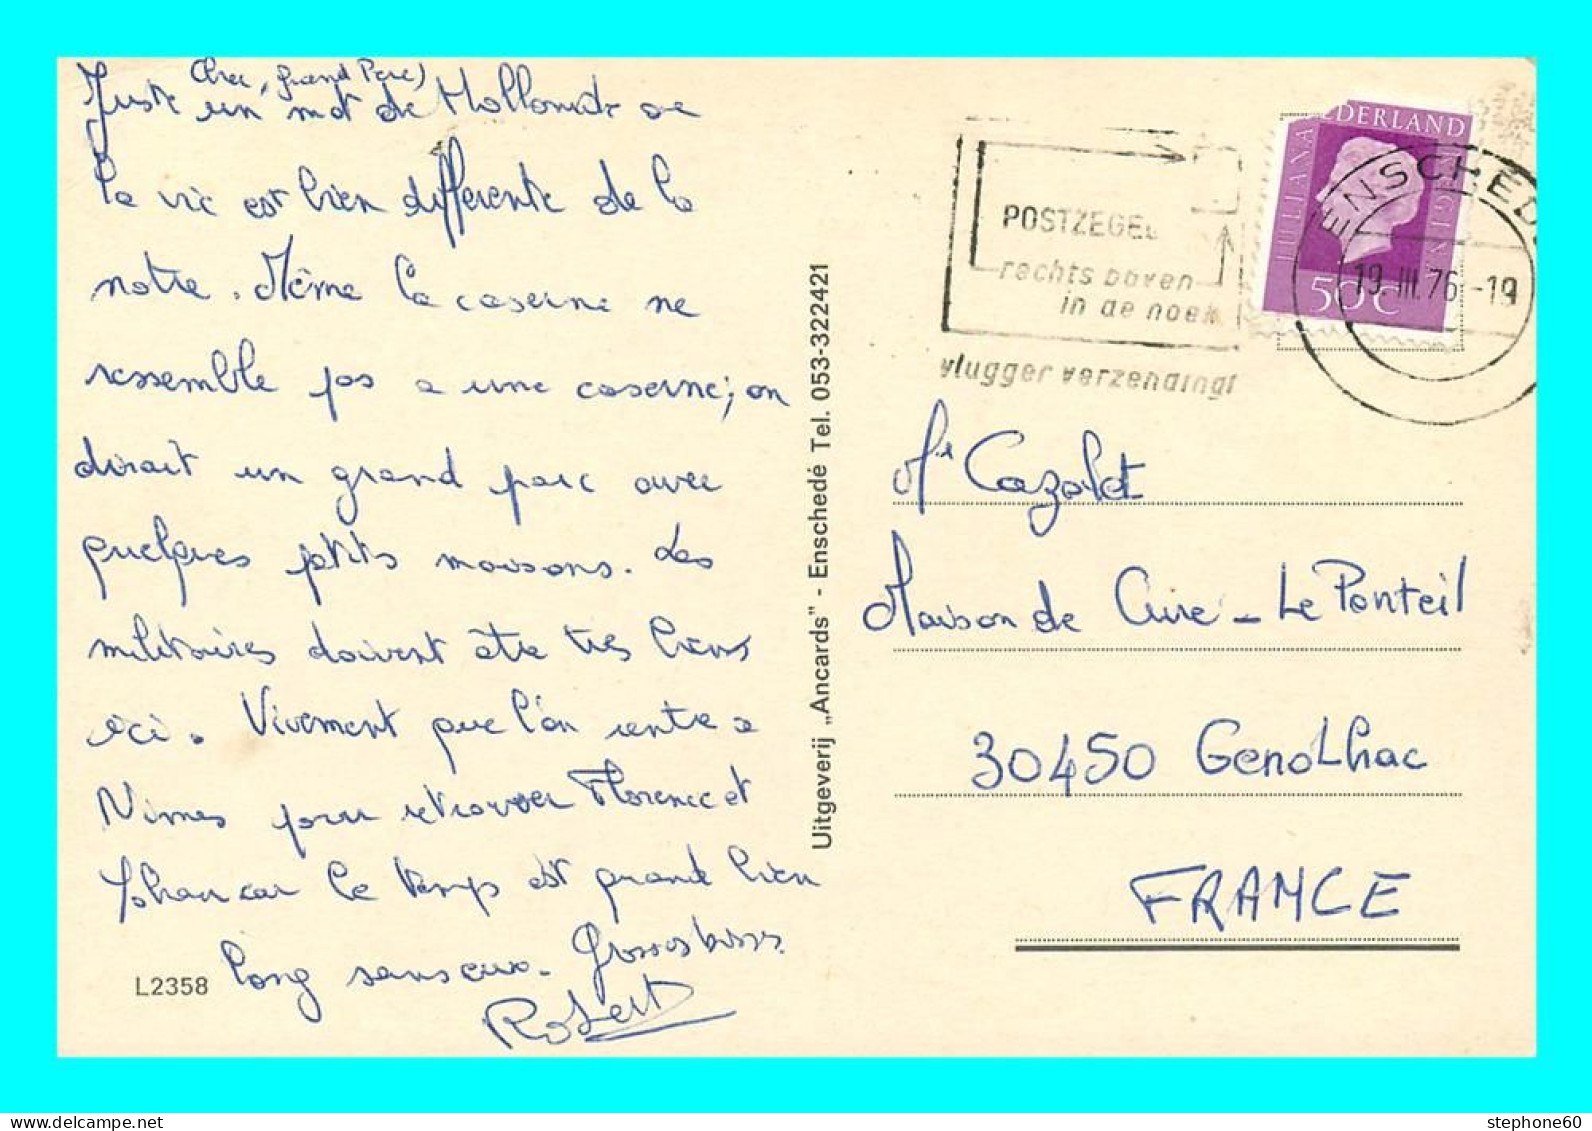 Cher Grand Père,
Juste un mot de Hollande où
la vie est bien différente de la
notre. Même la caserne ne
ressemble pas a une caserne; on
dirait un grand parc avec
quelques petits maisons. Les
militaires doivent être très biens
ici. Vivement que l'on rentre a
Nimes pour retrouver Florence et
car le temps est grand bien
long sans eux. Grosses bises.
Robert
L2358
Uitgeverij „Ancards” - Enschedé Tel. 053-322421
POSTZEGEL
rechts boven
in de hoek
vlugger verzending!
NEDERLAND
JULIANA REGINA
50c
ENSCHEDE
19.III.76-19
Mr Cazalet
Maison de Cure - Le Ponteil
30450 GenoLhac
FRANCE
stephone60